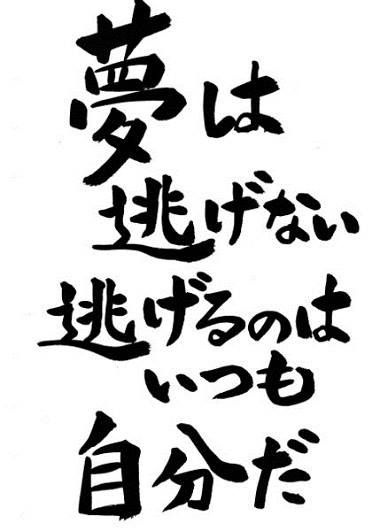 夢は
逃げない
逃げるのは
いつも
自分だ